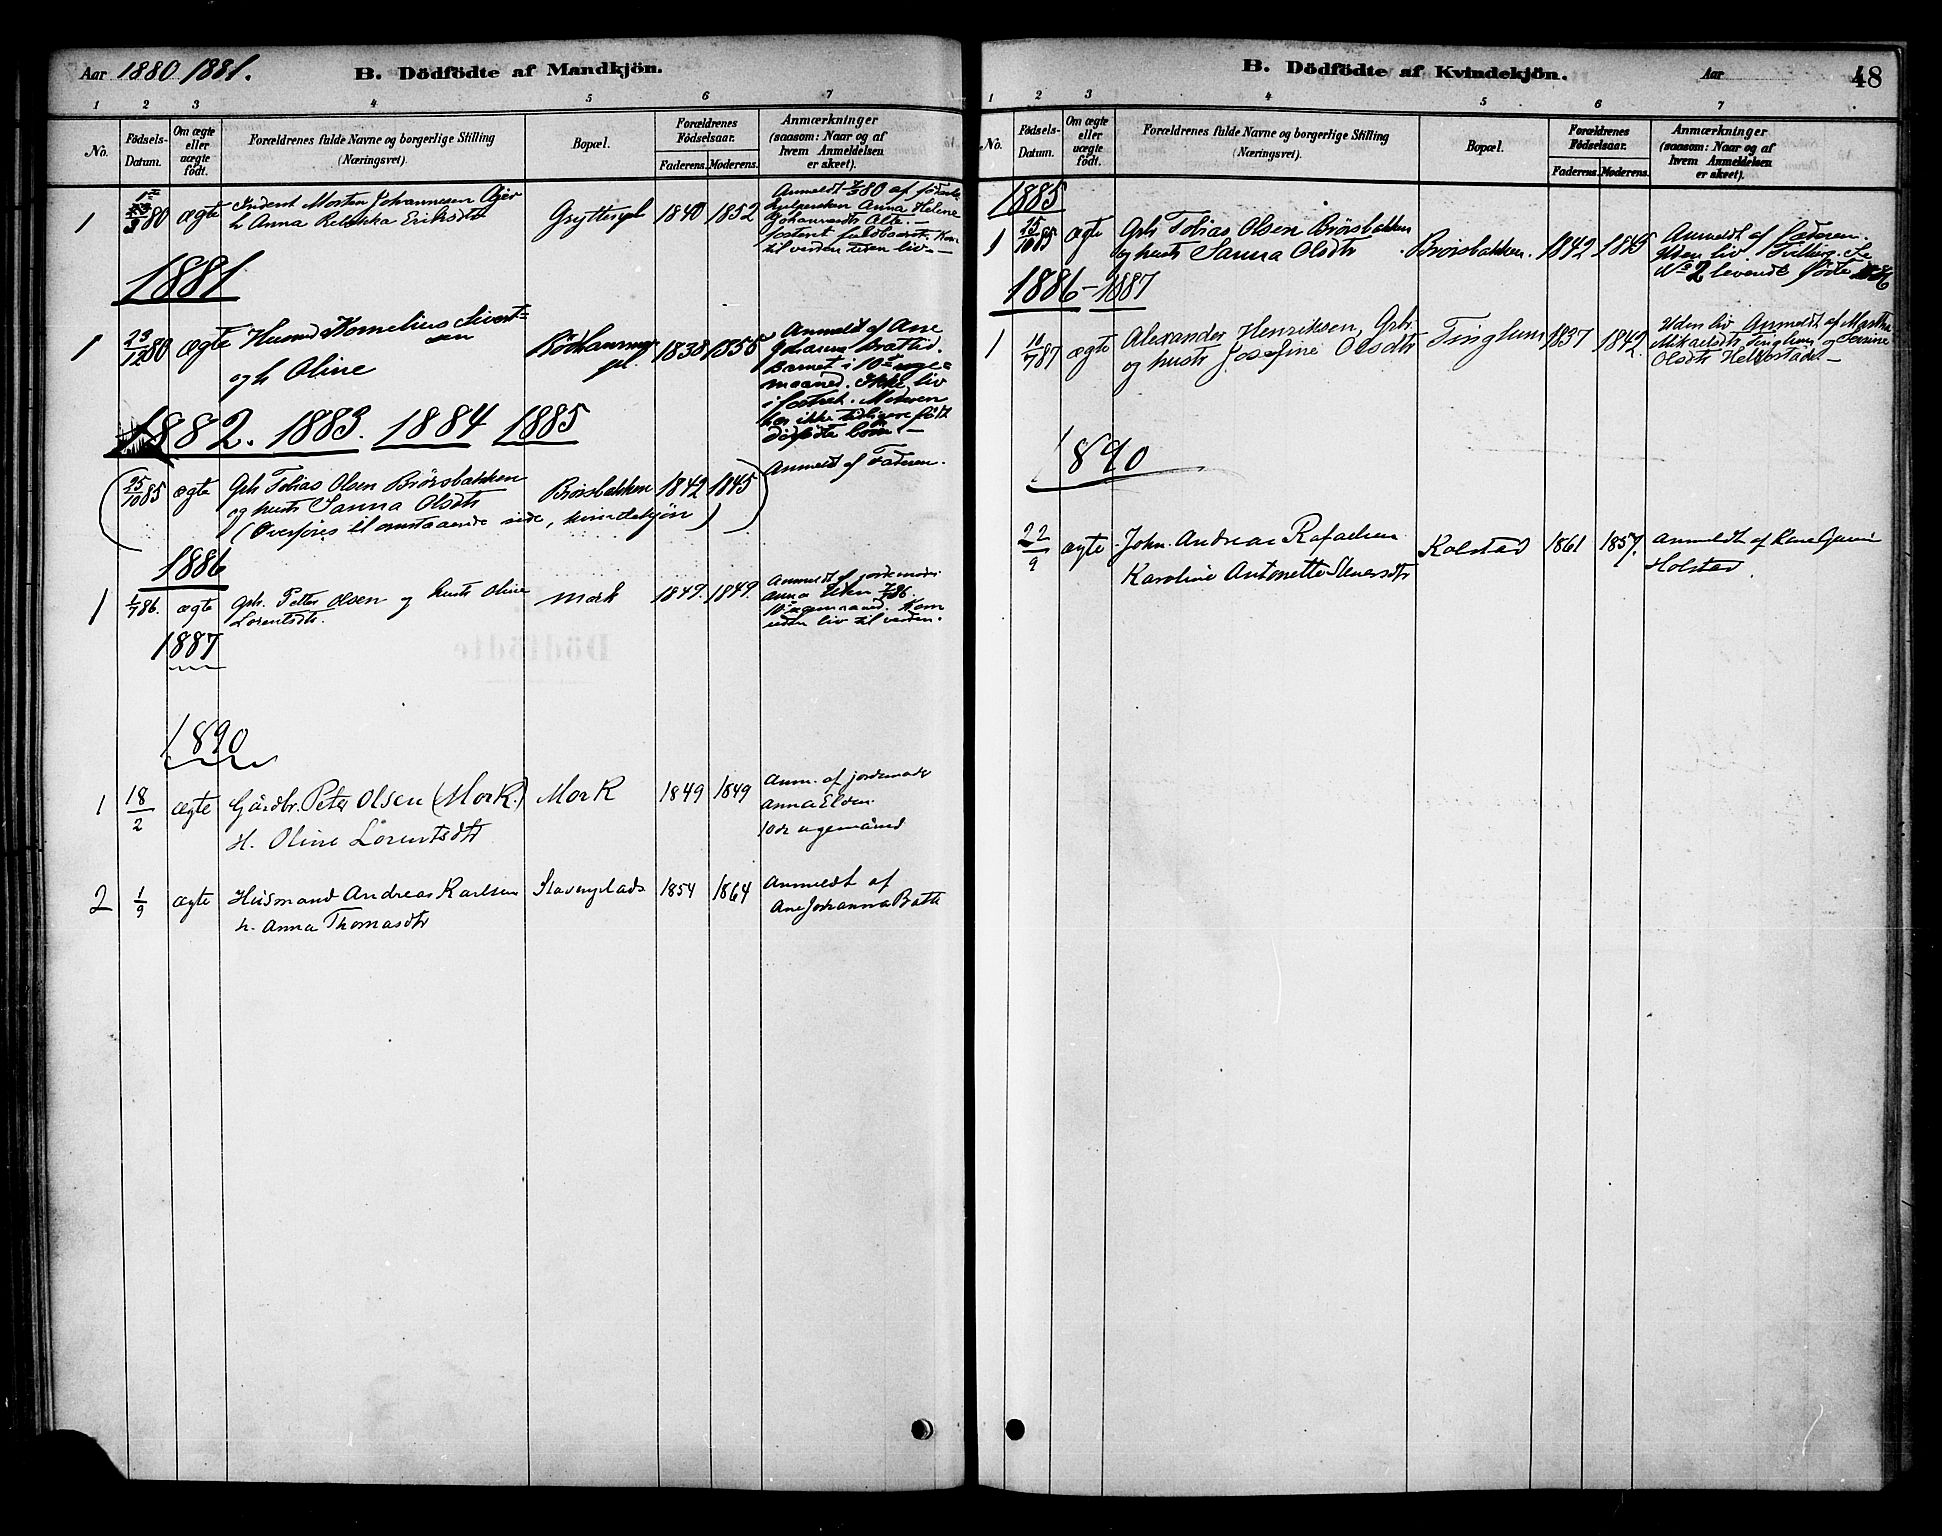 Aar 1880. 1881.
B. Dödfödte af Mandkjön.
1 2 3 4 5 6 7
No.
Födsels-Datum.
Om ægte eller uægte födt.
Forældrenes fulde Navne og borgerlige Stilling (Næringsvei).
Bopæl.
Forældrenes Födselsaar.
Faderens. Moderens.
Anmærkninger (saasom: Naar og af hvem Anmeldelsen er skeet).
1 80 ægte Inderst Morten Johannesen
h Anna Rebekka Eriksdtr
Grytterpl 1840 1852
Anmeldt 80 af födsels
hjelpersken Anna Helene
Johannesdtr
fosteret fuldbaaret. Kom
til verden uden liv.—
1881
1 23/12 80 ægte Husmd Kornelius Sivert=
sen
og h Oline
pl. 1838 1855
Anmeldt af Ane
Barnet i 10de uge=
maaned. Ikke liv
i fostret. Moderen
har ikke tidligere födt
dödfödte börn.—
1882. 1883. 1884 1885
(25/10 85 ægte Gbr Tobias Olsen Brörsbakken
og hustr Sanna Olsdtr
(Overföres til omstaaende side, kvindekjön)
Brörsbakken 1842 1845)
Anmeldt af Faderen.
1886
1 1/7 86. ægte Gbr. Petter Olsen og hustr Oline
Lorentsdtr.
Mork 1849. 1849.
Anmeldt af jordemoder
Anna Elden 86.
10de ugemaaned. Kom
uden liv til verden.
1887
1890
1 18/2 ægte Gårdbr. Peter Olsen (Mork.)
H. Oline Lorentsdtr
Mork 1849 1849
Anm. af jordemoder
Anna Elden.
10de ugemåned
2 1/9 ægte Husmand Andreas Karlsen
h. Anna Thomasdtr
1854 1864
Anmeldt af
Ane Johanna
B. Dödfödte af Kvindekjön.
Aar
48
1 2 3 4 5 6 7
No.
Födsels-Datum.
Om ægte eller uægte födt.
Forældrenes fulde Navne og borgerlige Stilling (Næringsvei).
Bopæl.
Forældrenes Födselsaar.
Faderens. Moderens.
Anmærkninger (saasom: Naar og af hvem Anmeldelsen er skeet).
1885
1 25/10 85 ægte Gbr Tobias Olsen Brörsbakken
og hustr Sanna Olsdtr
Brörsbakken. 1842 1845
Anmeldt af Faderen.
Uden liv. Tvilling. Se
No 2 levende födte
1886-1887
1 10/7 87 ægte Alexander Henriksen, Gbr.
og hustr Josefine Olsdtr
Tinglum 1837 1842.
Uden liv Anmeldt af Martha
Mikaelsdtr Tinglum, og
Olsdtr
1890
22/9 ægte John Andreas Rafaelsen
Karoline Antonette
Kolstad 1861 1857.
anmeldt af
Holstad